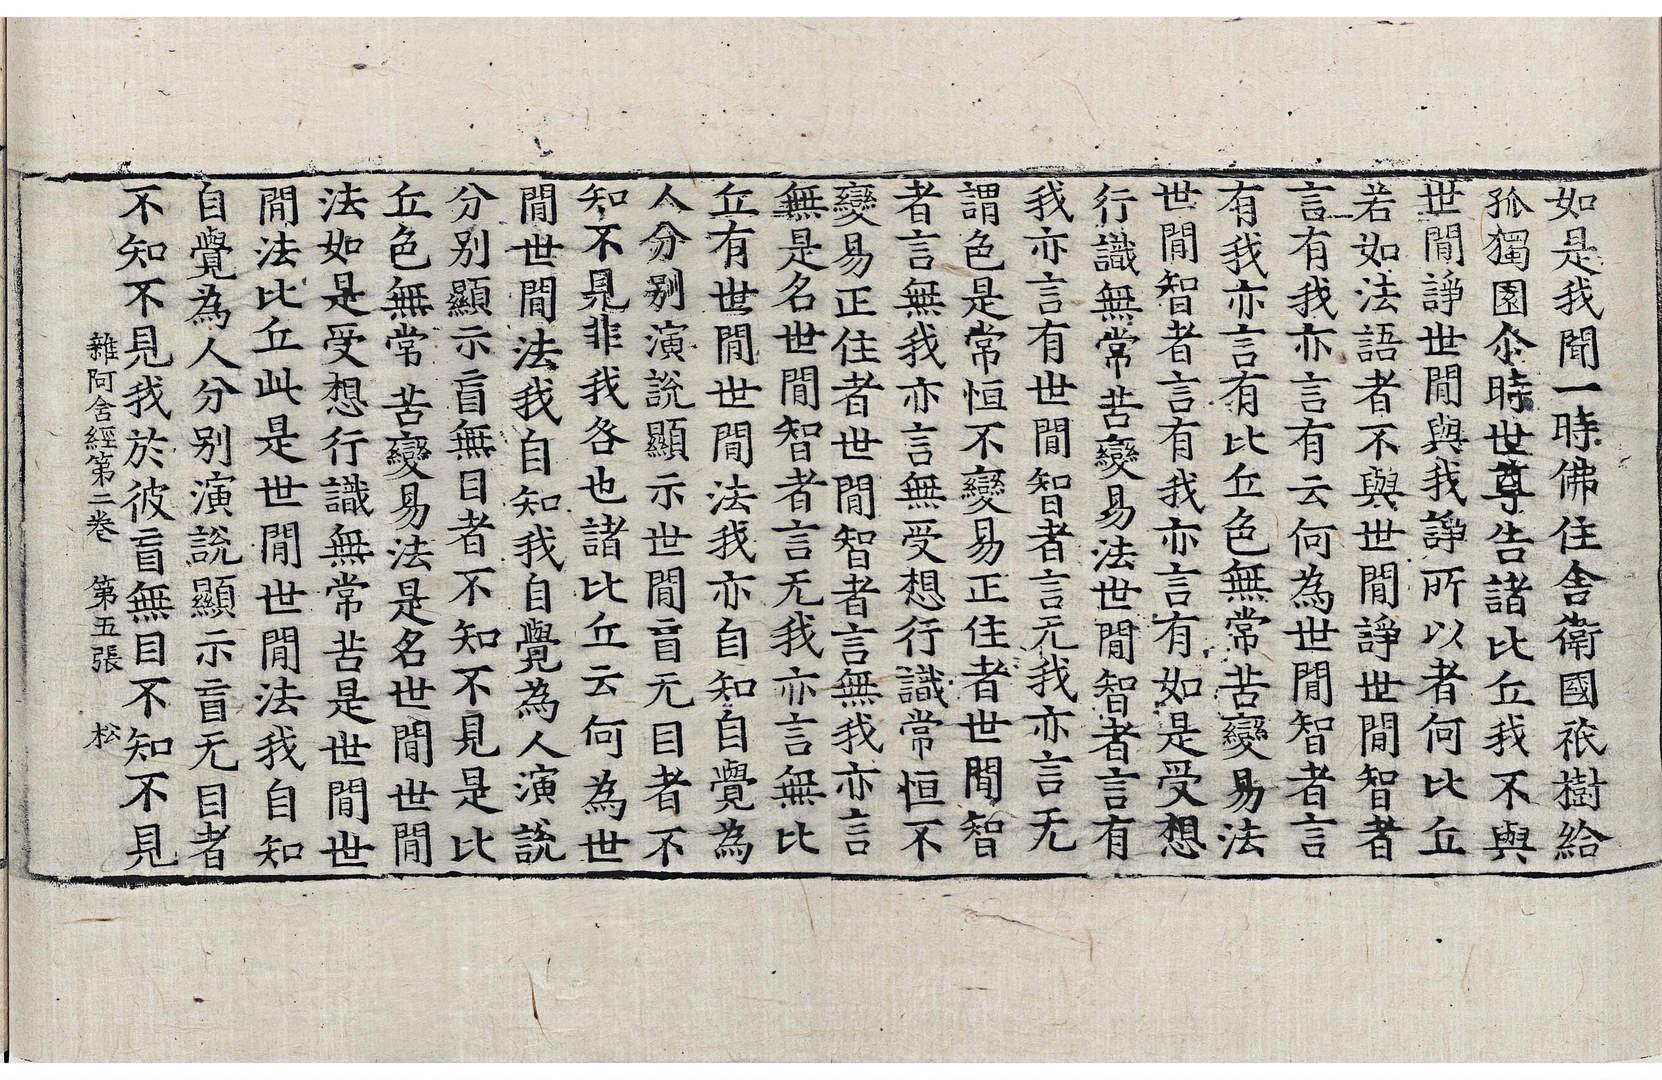 如是我聞一時佛住舍衛國祇樹給
孤獨園尒時世尊告諸比丘我不與
世閒諍世閒與我諍所以者何比丘
若如法語者不與世閒諍世閒智者
言有我亦言有云何為世閒智者言
有我亦言有比丘色無常苦變易法
世閒智者言有我亦言有如是受想
行識無常苦變易法世閒智者言有
我亦言有世閒智者言无我亦言无
謂色是常恒不變易正住者世閒智
者言無我亦言無受想行識常恒不
變易正住者世閒智者言無我亦言
無是名世閒智者言无我亦言無比
丘有世閒世閒法我亦自知自覺為
人分别演說顯示世閒盲无目者不
知不見非我各也諸比丘云何為世
閒世閒法我自知我自覺為人演說
分别顯示盲無目者不知不見是比
丘色無常苦變易法是名世閒世閒
法如是受想行識無常苦是世閒世
閒法比丘此是世閒世閒法我自知
自覺為人分别演說顯示盲无目者
不知不見我於彼盲無目不知不見
雜阿含經第二卷　第五張　松